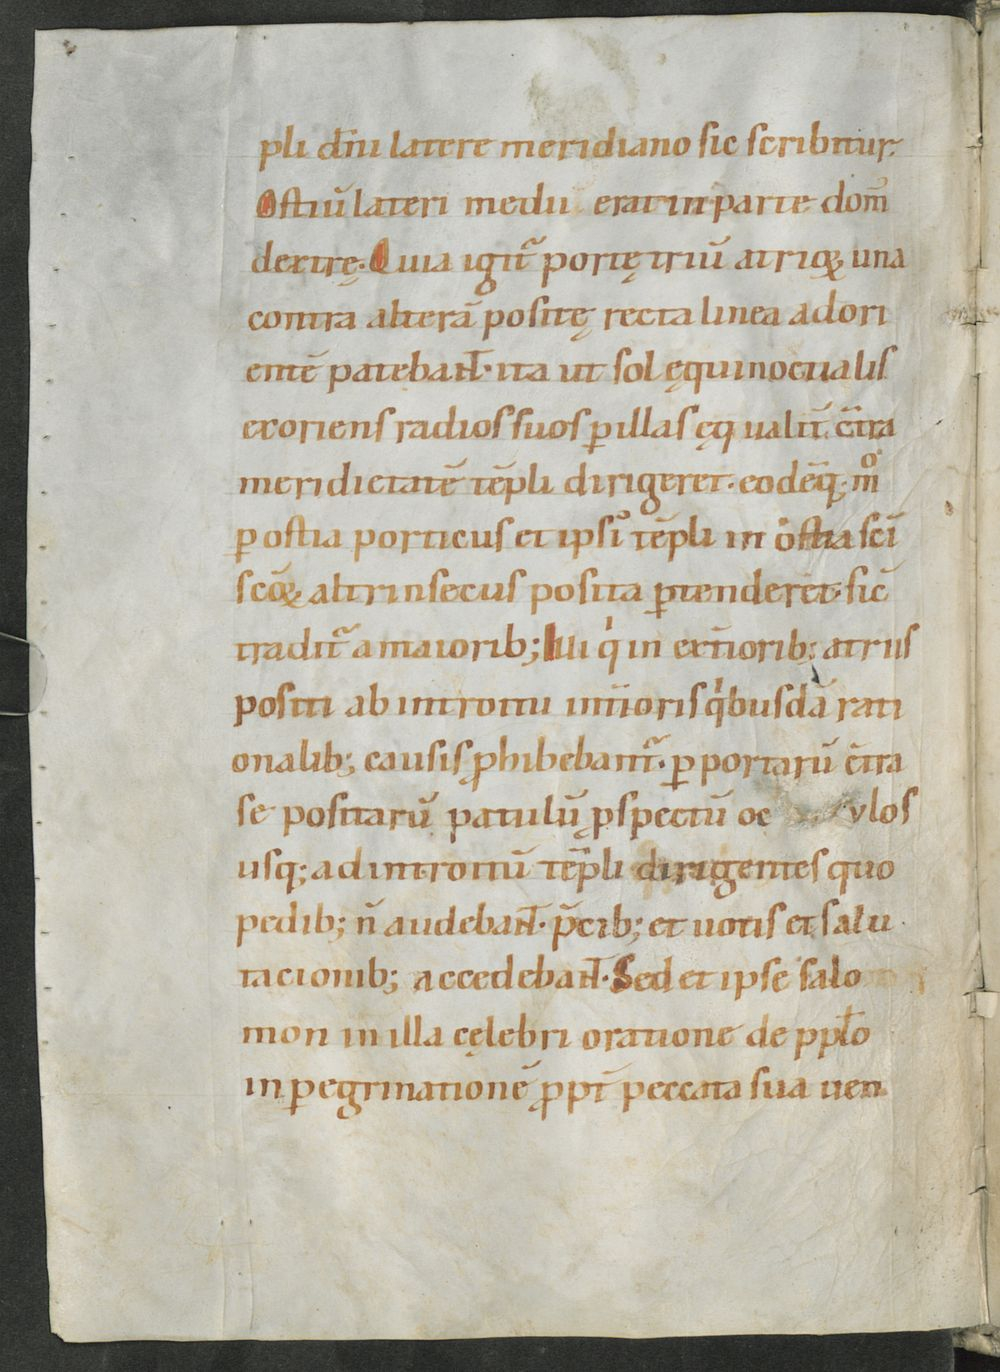 pli dn̄i latere meridiano sic scribitur.
Ostiū lateri medii erat in parte dom̄
dextrę. Quia igit᷑ portę triū atrioꝝ una
contra alterā positę recta linea ad ori
entē patebant̄. ita ut sol ęquinoctialis
exoriens radios suos ꝑ illas ęqualit̄ c̄tra
meridietatē tēpli dirigeret. eodēq; mͦ
ꝑ ostia porticus et ipsiͦ tēpli in ostia sc̄i
sc̄oꝝ altrinsecus posita ꝑtenderet. sic
tradit᷑ a maiorib; Illi qͥ in ext̄iorib; atriis
positi ab introitu int̄ioris qͥbusdā rati
onalib; causis ꝓhibebant᷑. ꝑ portarū c̄tra
se positarū patulū ꝓspectū oc ulos
usq; ad introitū tēpli dirigentes quo
pedib; n̄ audebant̄. p̄cib; et uotis et salu
tacionib; accedebant̄. Sed et ipse salo
mon in illa cęlebri oratione de ppl̄o
in ꝑegrinationē ꝓpt̄ peccata sua uen